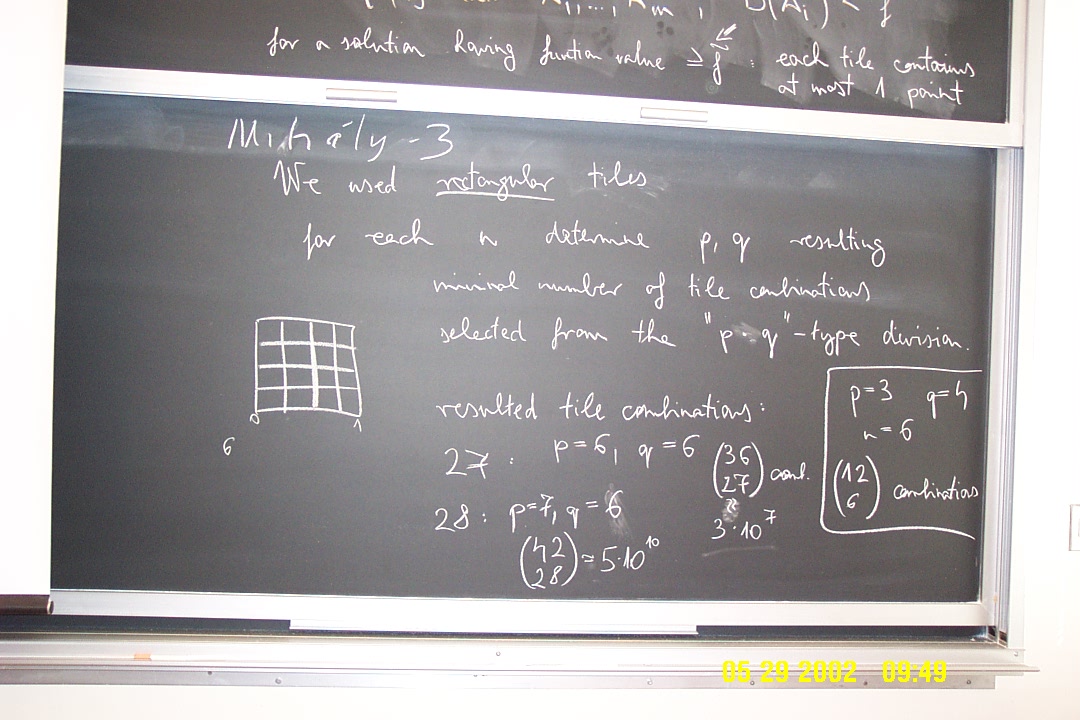 for a solution having function value ≥ f : each tile contains
at most 1 point
Mihály-3
We used rectangular tiles
for each n determine p, q resulting
minimal number of tile combinations
selected from the "p·q"-type division.
resulted tile combinations:
27: p=6, q=6 (36 27) comb.
≈
3·10^7
28: p=7, q=6
(42 28) ≈ 5·10^10
p=3 q=4
n=6
(12 6) combinations
0 1
6
05 29 2002 09:49